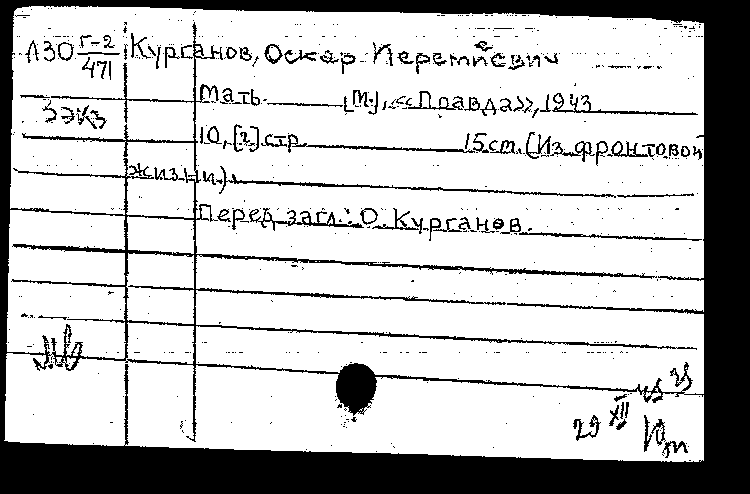 Л30 Г-2/471 Курганов, Оскар Иеремиевич
Мать. [М.], «Правда», 1943
3 экз
10, [2] стр. 15 см. (Из фронтовой
жизни.).
Перед загл.: О. Курганов.
29 XII